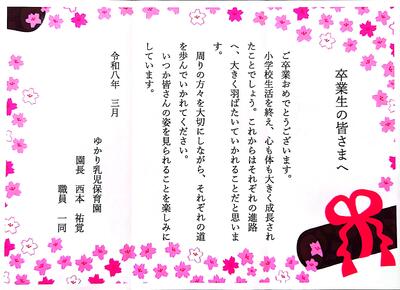 卒業生の皆さまへ
ご卒業おめでとうございます。
小学校生活を終え、心も体も大きく成長され
たことでしょう。これからはそれぞれの進路
へ、大きく羽ばたいていかれることだと思いま
す。
周りの方々を大切にしながら、それぞれの道
を歩んでいかれてください。
いつか皆さんの姿を見られることを楽しみに
しています。
令和八年　三月
ゆかり乳児保育園
園長　西本　祐覚
職員　一同